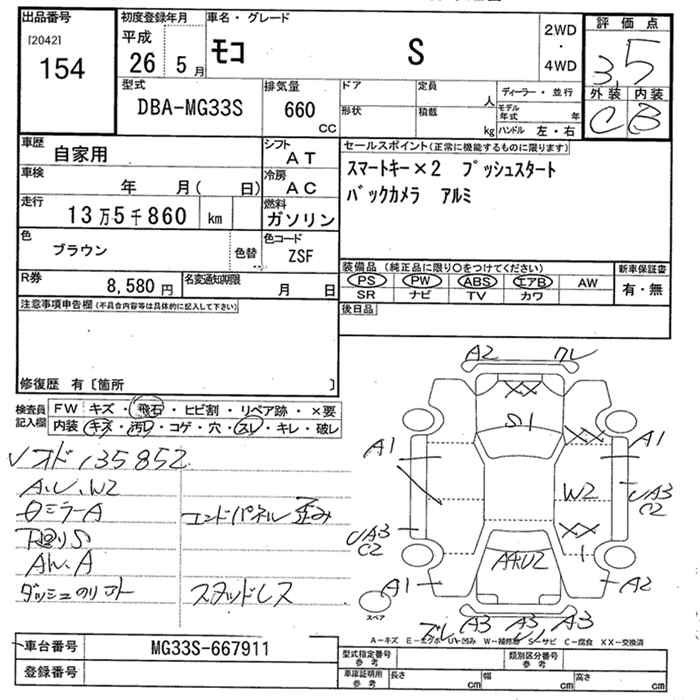 出品番号
[2042]
154
初度登録年月
平成
26 5 月
車名・グレード
モコ S
2WD
・
4WD
評価点
3.5
外装 内装
C B
型式
DBA-MG33S
排気量
660 CC
ドア
定員 人
ディーラー・並行
形状
積載 kg
モデル年式 年
ハンドル 左・右
車歴
自家用
シフト
AT
セールスポイント(正常に機能するものに限ります)
スマートキー×2 プッシュスタート
バックカメラ アルミ
車検
年 月( 日)
冷房
AC
走行
13万5千860 km
燃料
ガソリン
色
ブラウン
色替
色コード
ZSF
装備品(純正品に限り○をつけてください)
新車保証書
PS PW ABS エアB AW
有・無
SR ナビ TV カワ
R券
8,580 円
名変通知期限
月 日
後日品
注意事項申告欄(不具合内容等は具体的に記入して下さい)
修復歴 有〔箇所 〕
検査員記入欄
FW キズ・飛石・ヒビ割・リペア跡・×要
内装 キズ・汚レ・コゲ・穴・スレ・キレ・破レ
135852
A.U.W2
ミラーA
エンドパネル歪み
下廻りS
AW.A
スタッドレス
A2
S1
A1
A1
W2
UA3
C2
UA3
C2
XX
XX
XX
1
A1
A2
A3
A3
A3
スペア
A-キズ E-エクボ U-凹み W-補修跡 S-サビ C-腐食 XX-交換済
車台番号
MG33S-667911
登録番号
型式指定番号
参考
類別区分番号
参考
車庫証明用
参考
長さ cm
幅 cm
高さ cm